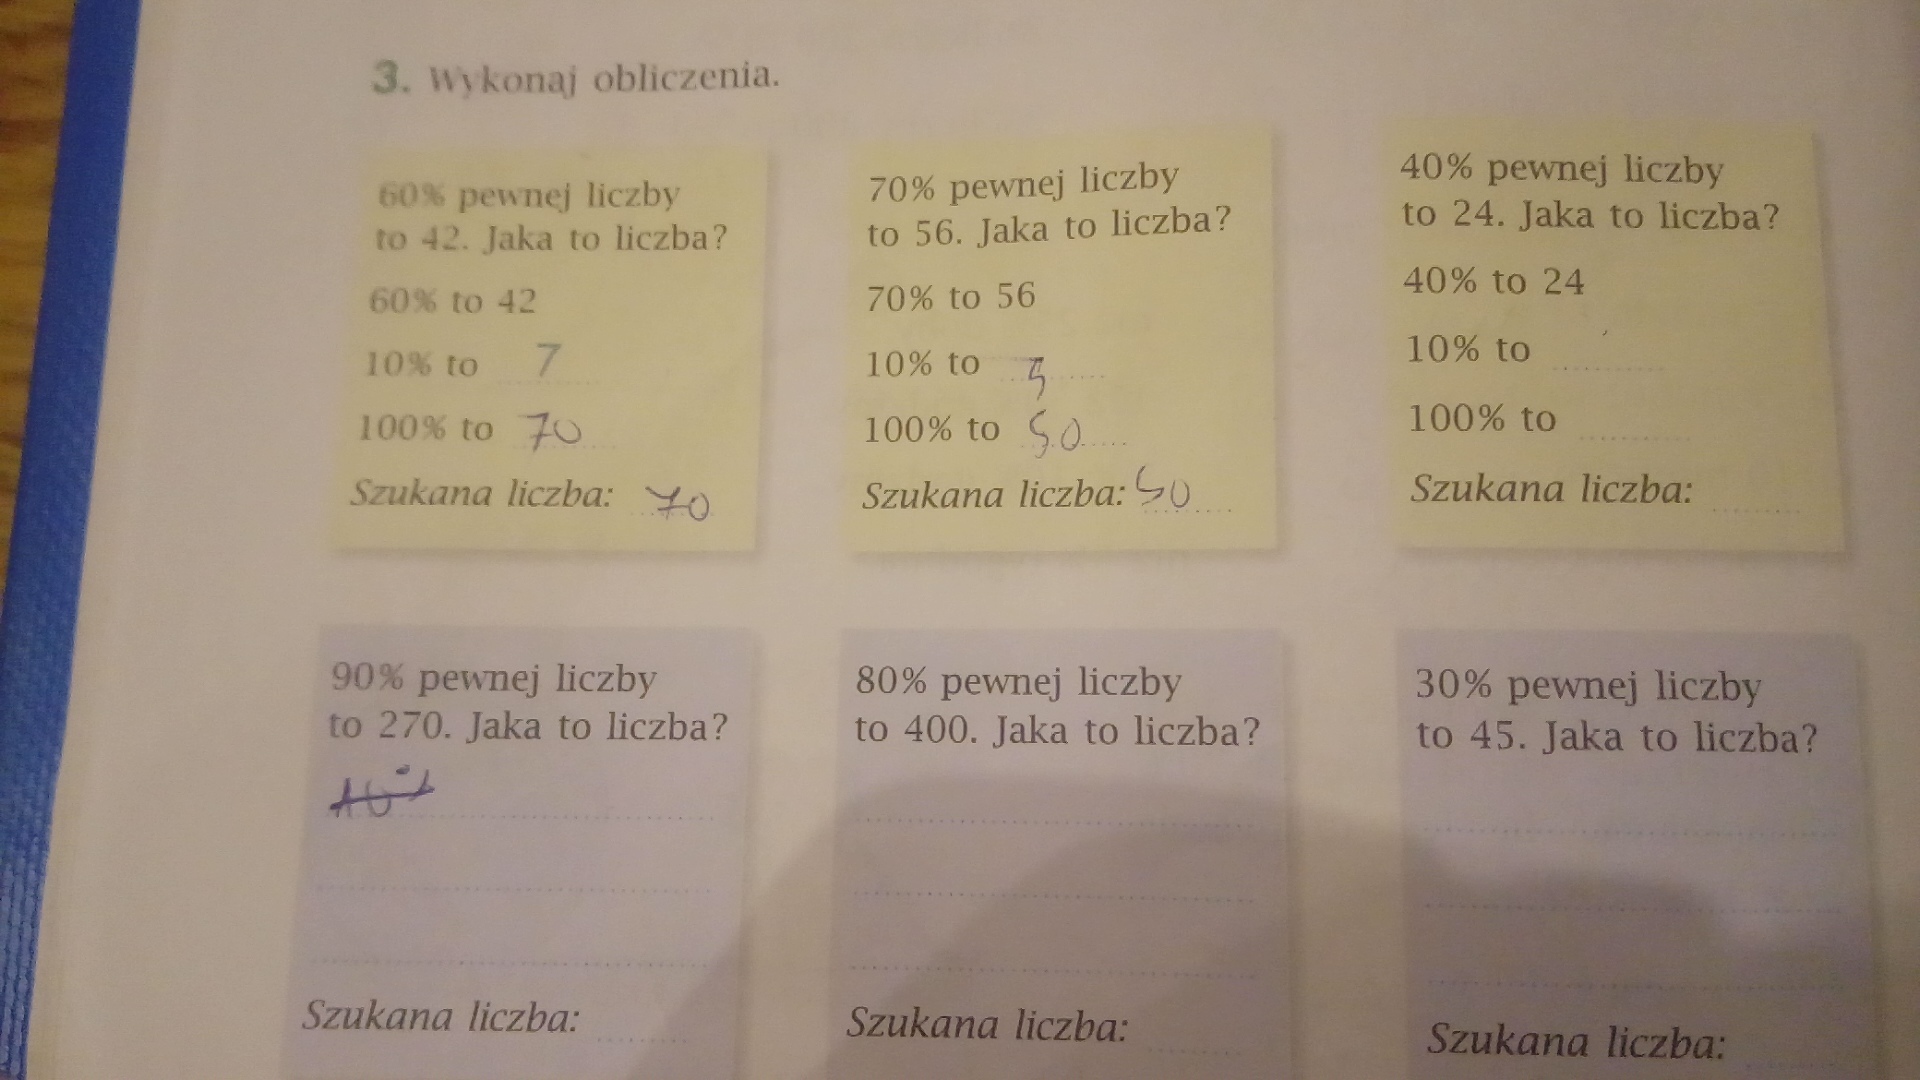 3. Wykonaj obliczenia.
60% pewnej liczby
to 42. Jaka to liczba?
60% to 42
10% to 7
100% to 70
Szukana liczba: 70
70% pewnej liczby
to 56. Jaka to liczba?
70% to 56
10% to 5
100% to 50
Szukana liczba: 50
40% pewnej liczby
to 24. Jaka to liczba?
40% to 24
10% to
100% to
Szukana liczba:
90% pewnej liczby
to 270. Jaka to liczba?
Szukana liczba:
80% pewnej liczby
to 400. Jaka to liczba?
Szukana liczba:
30% pewnej liczby
to 45. Jaka to liczba?
Szukana liczba: